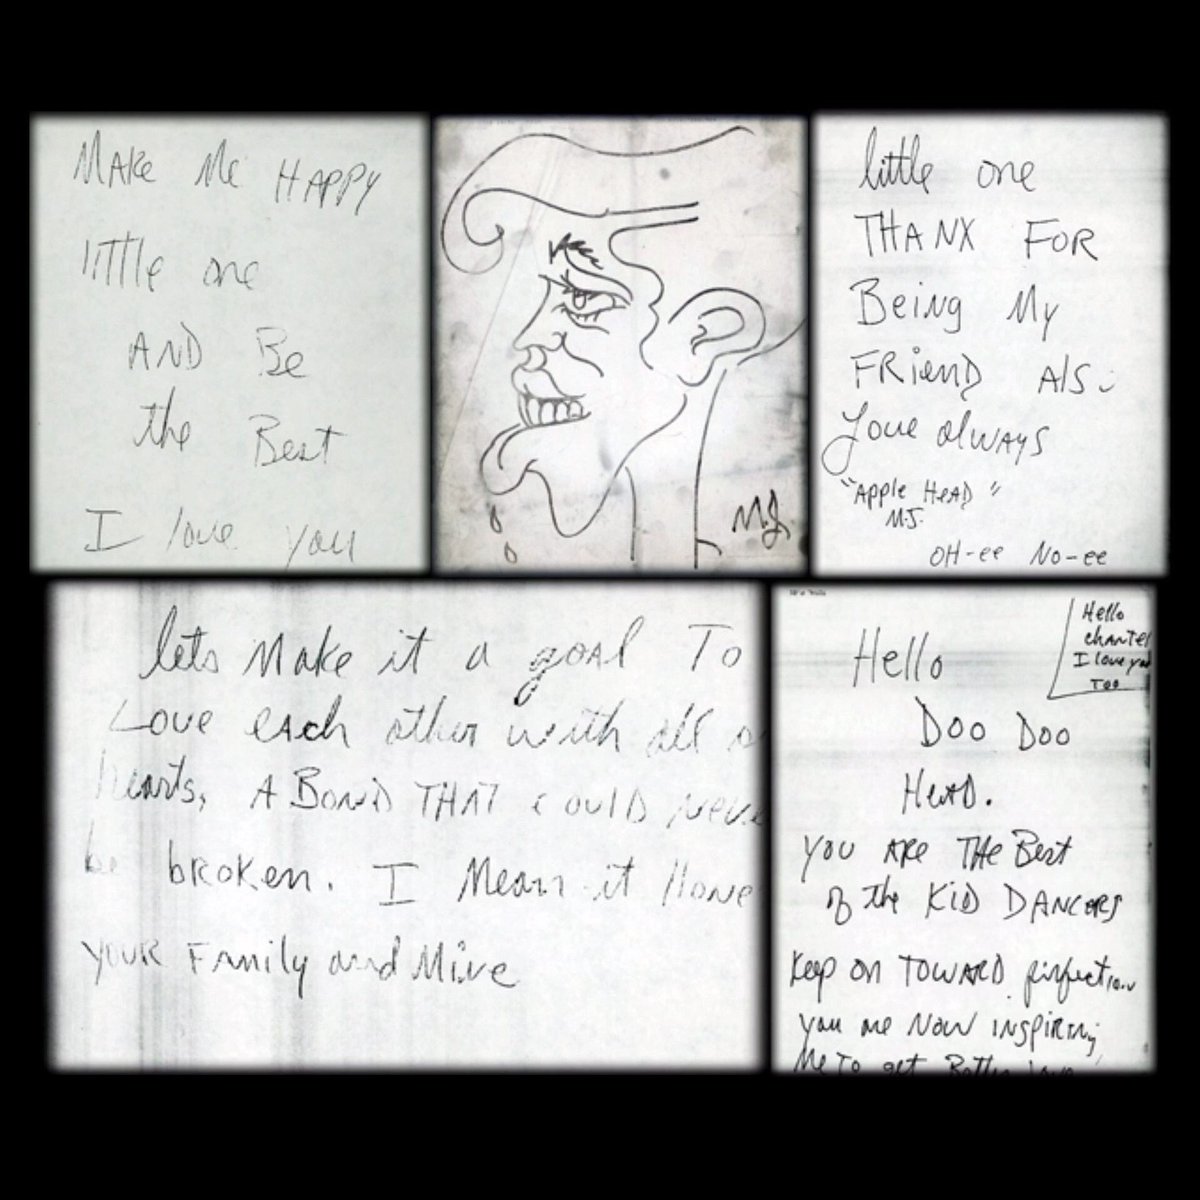 Make Me HAPPY
little one
AND Be
the Best
I love you
M.J.
little one
THANX FOR
Being My
FRienD Also
love always
"Apple HeAD"
M.J.
OH-ee No-ee
lets Make it a goal To
Love each other with all
hearts, A BonD THAT coulD never
be broken. I Mean it
your Family and Mine
Hello
chantel
I love you
Too
Hello
Doo Doo
HeAD.
you ARe THe Best
of the KiD DANCERS
keep on TOWARD perfection
you are Now inspiring
Me To get Better love